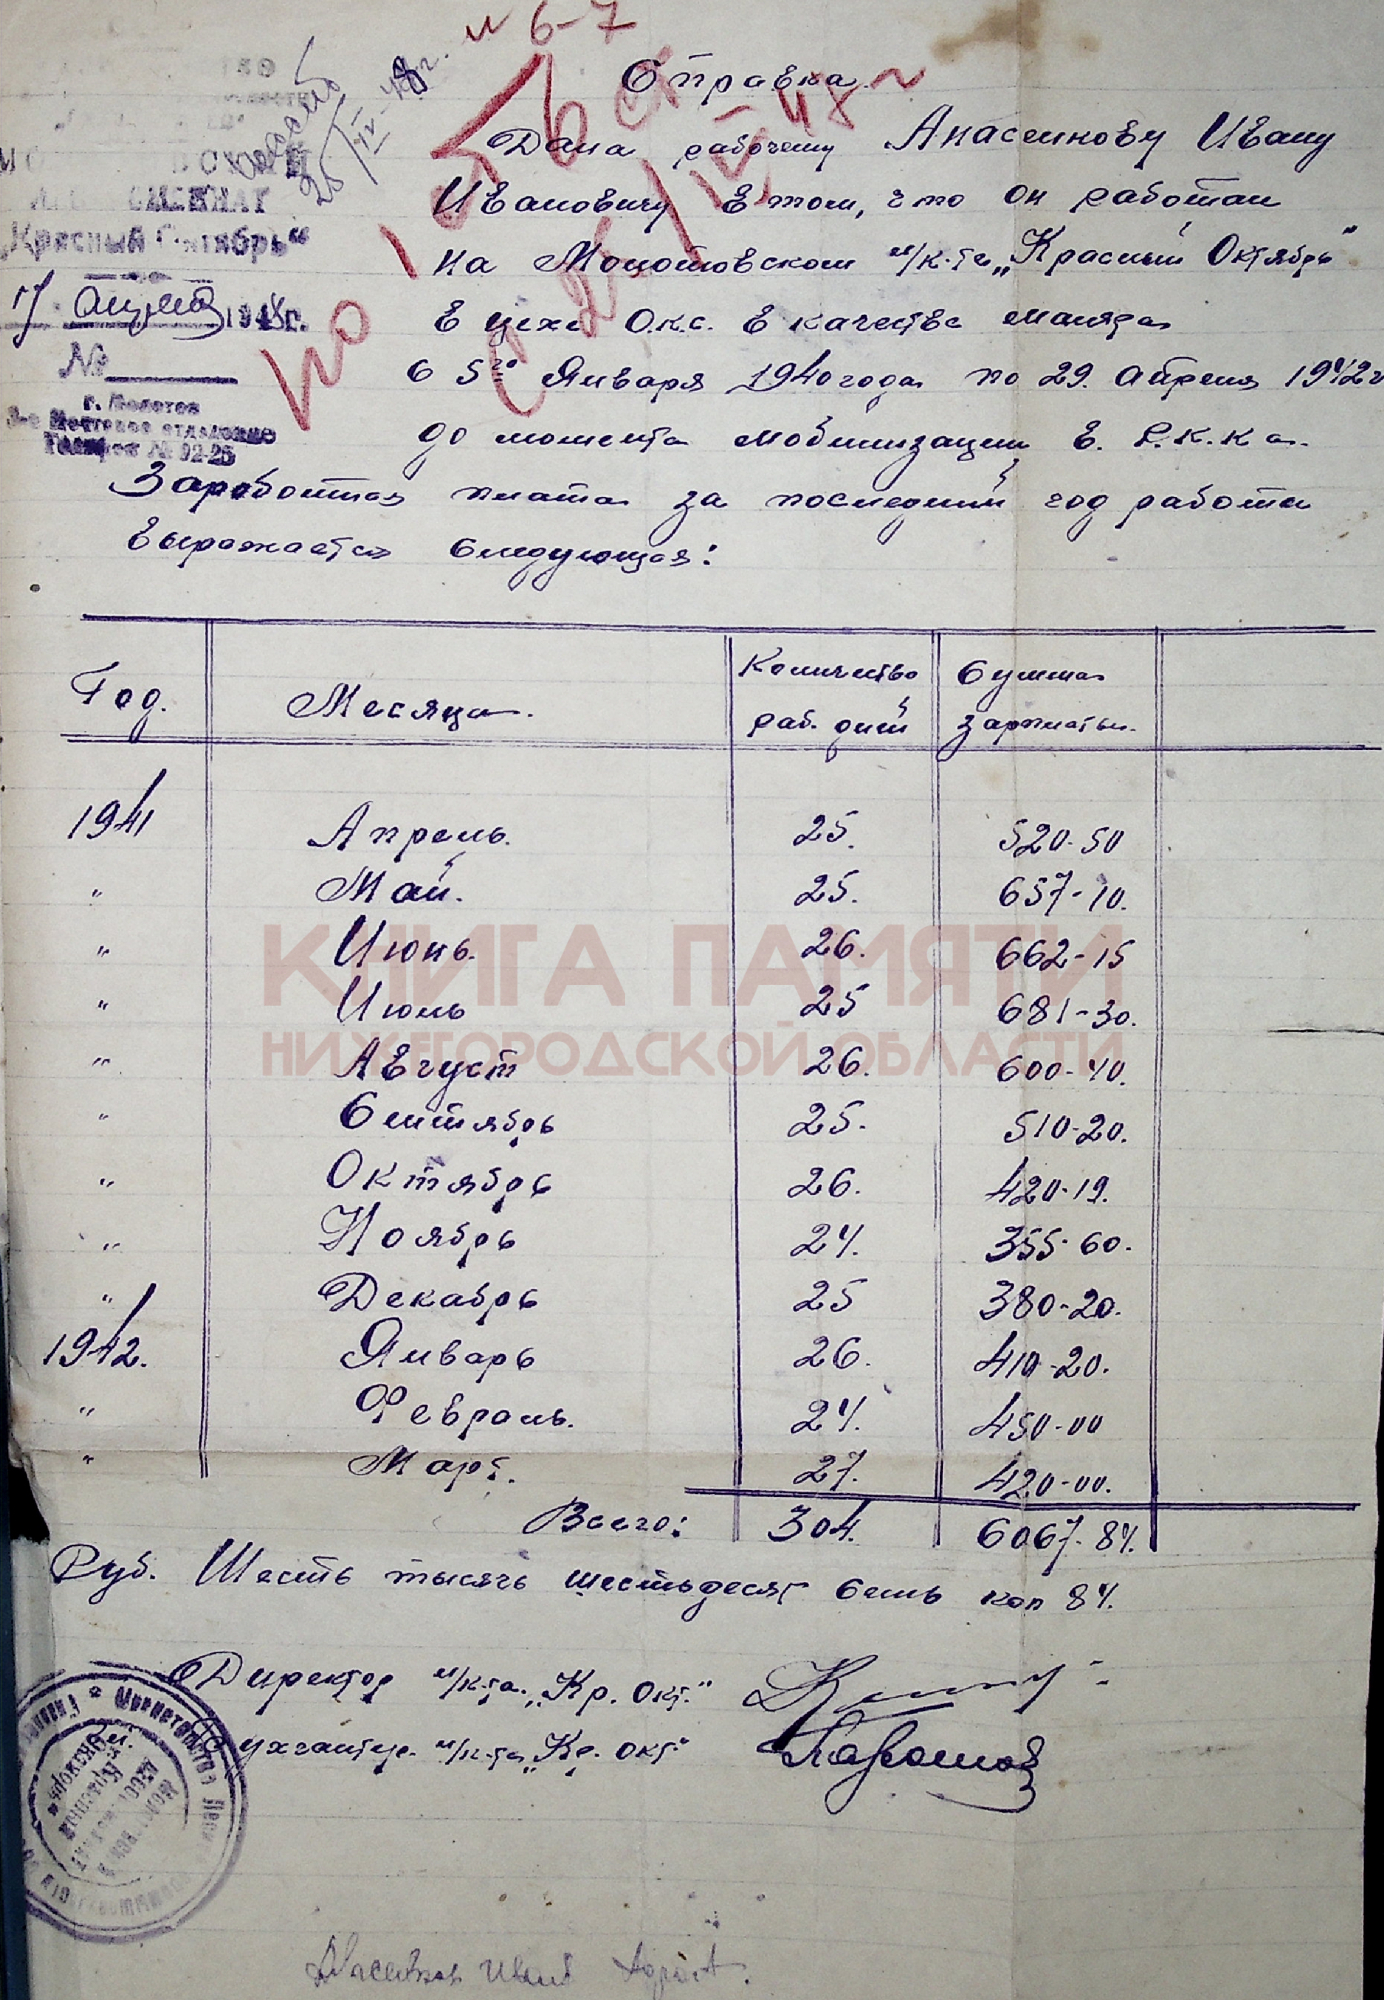 № 6-7
Справка.
Дана рабочему Апасеинову Ивану
Ивановичу в том, что он работал
на Молотовском м/к-те „Красный Октябрь“
в цехе О.к.с. в качестве маляра
с 5го Января 1940 года по 29. Апреля 1942 г
до момента мобилизации в. Р.К.К.А.
Заработная плата за последний год работы
выражается следующая:
„Красный Октябрь“
17 апреля 1948г.
№
г. Молотов
3-е Почтовое отделение
Телефон № 92-25
Год. Месяца. Количество раб. дней Сумма зарплаты.
1941 Апрель. 25. 520-50
" Май. 25. 657-10.
" Июнь. 26. 662-15
" Июль 25 681-30.
" Август 26. 600-40.
" Сентябрь 25. 510-20.
" Октябрь 26. 420-19.
" Ноябрь 24. 355-60.
" Декабрь 25 380-20.
1942. Январь 26. 410-20.
" Февраль. 24. 450-00
" Март. 27. 420-00.
Всего: 304. 6067-84.
Руб. Шесть тысячь шестьдесят семь коп 84.
Директор м/к-та. „Кр. Окт.“
Бухгалтер. м/к-та „Кр. Окт“
КНИГА ПАМЯТИ
НИЖЕГОРОДСКОЙ ОБЛАСТИ